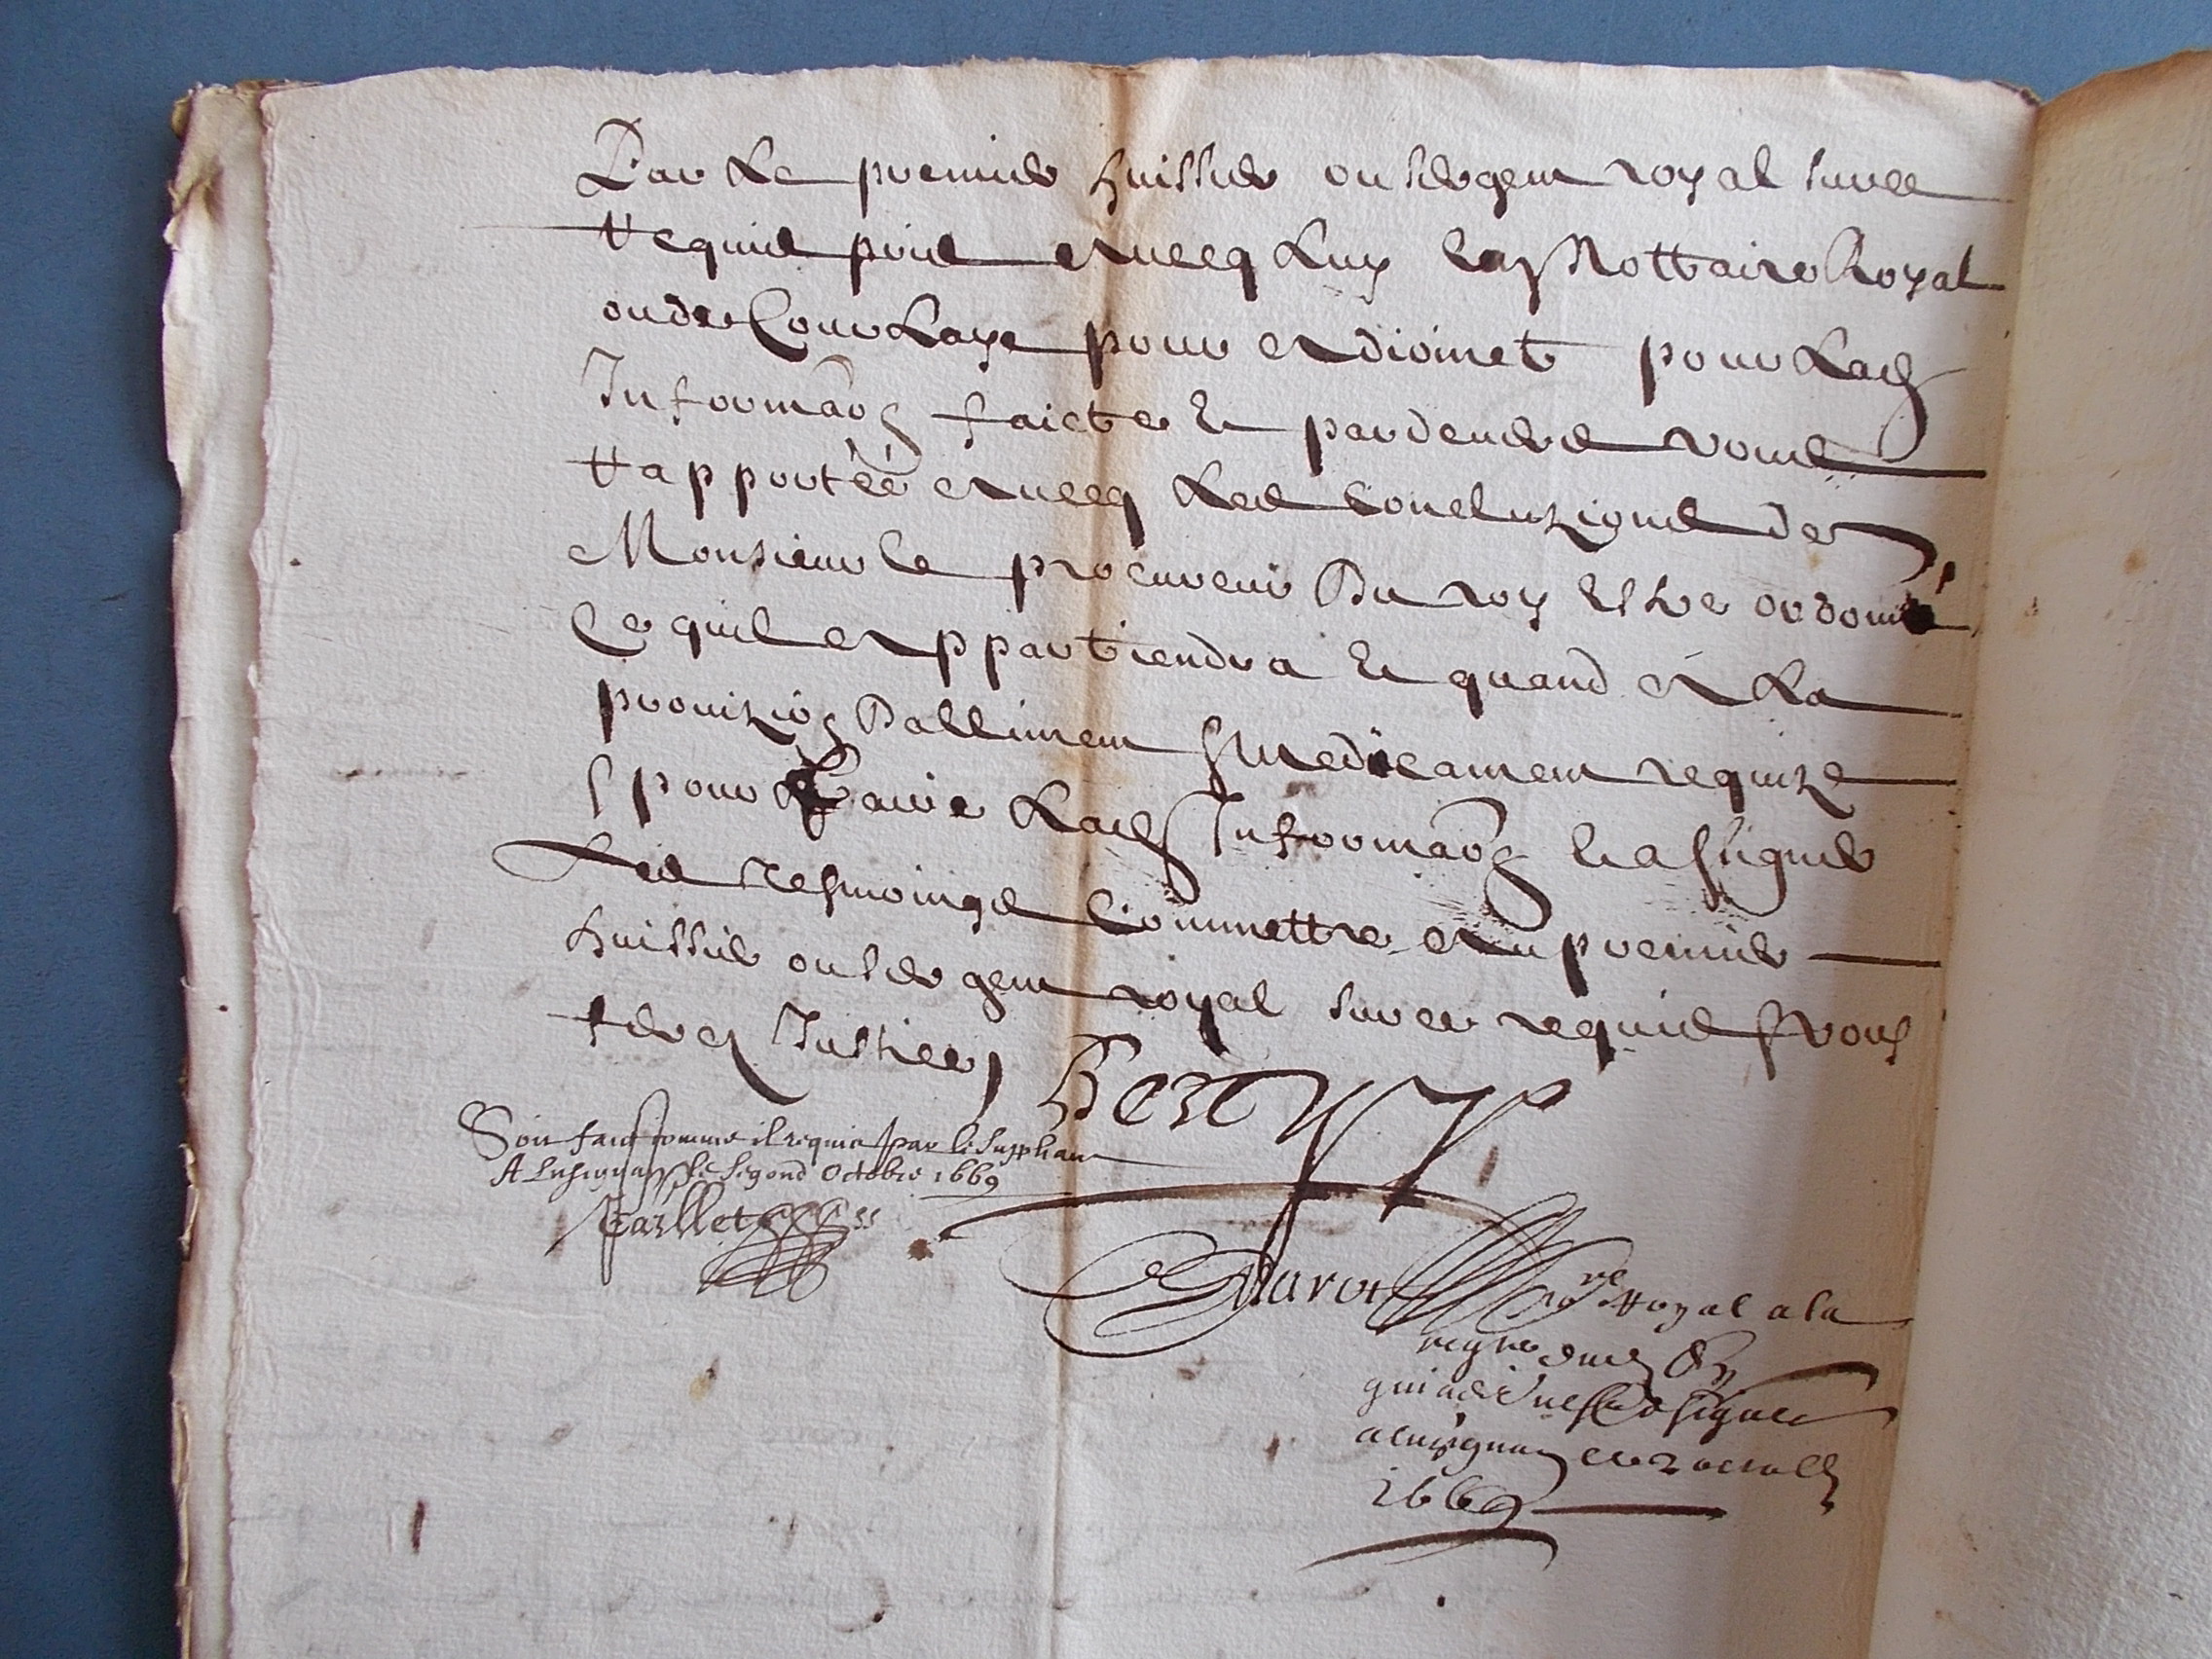 Par Le premier huissier ou sergent royal sur ce
Requis pris avecq Luy un Nottaire Royal
ou de Cour Laye pour adjoinct pour Lad
Informaõn faicte et par devers vous
Rapportéé avecq Les concluzions de
Monsieur le procureur Du roy estre ordonné
Ce quil appartiendra et quand a La
provizion Dallimens & medicamens requize
& pour faire Lad Informaõn et assigner
Les tesmoings Commettre au premier
huissier ou sergent royal sur ce requis & vous
ferez Justice
Soit faict comme il requis par le suppliant
A Lusignan le segond Octobre 1669
Paillet
No.re Royal a la
qui a declaré ne scavoir signer
a Luzignan ce 2 octobre
1669